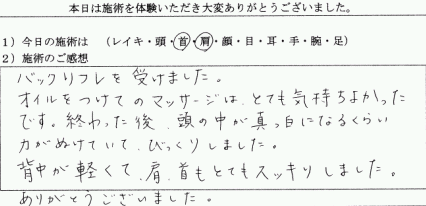 本日は施術を体験いただき大変ありがとうございました。
1）今日の施術は （レイキ・頭・首・肩・顔・目・耳・手・腕・足）
2）施術のご感想
バックリフレを受けました。
オイルをつけてのマッサージは、とても気持ちよかった
です。終わった後、頭の中が真っ白になるくらい
力がぬけていて、びっくりしました。
背中が軽くて、肩、首もとてもスッキリしました。
ありがとうございました。